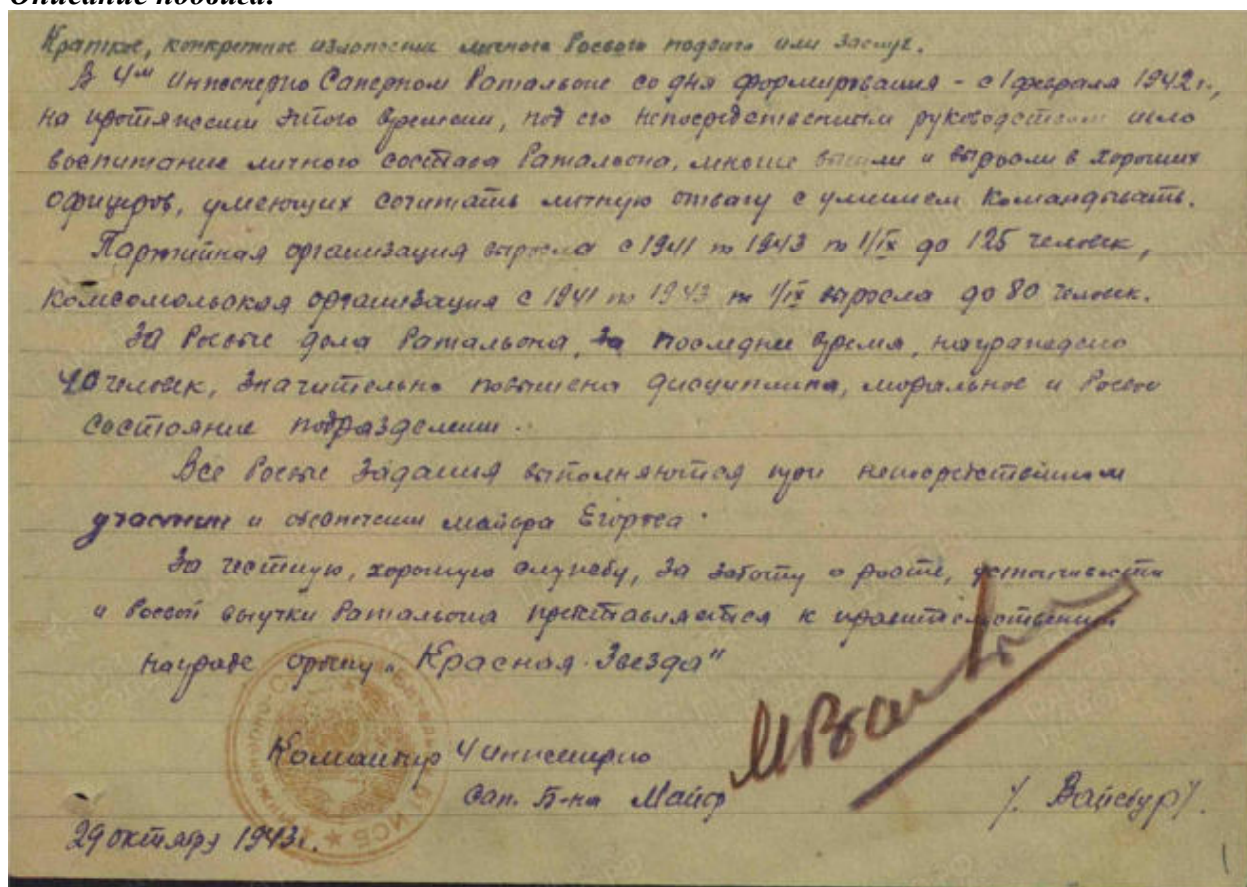 Описание подвига:
Краткое, конкретное изложение личного боевого подвига или заслуг.
В 4м Инженерно Саперном батальоне со дня формирования - с 1 февраля 1942 г.,
на протяжении этого времени, под его непосредственным руководством шло
воспитание личного состава батальона, многие выросли в хороших
офицеров, умеющих сочитать личную отвагу с умением командывать.
Партийная организация выросла с 1941 по 1943 по 1/IX до 125 человек,
Комсомольская организация с 1941 по 1943 по 1/IX выросла до 80 человек.
За боевые дела батальона, за последнее время, награждено
40 человек, значительно повышена дисциплина, моральное и боевое
состояние подразделений.
Все боевые задания выполняются при непосредственном
участии и обеспечении майора Егорова.
За честную, хорошую службу, за заботу о росте, устойчивости
и боевой выучки батальона представляется к правительственной
награде ордену "Красная Звезда"
Командир 4 Инженерно
Сап. Б-на Майор /. Вайсбур/.
29 октября 1943 г.